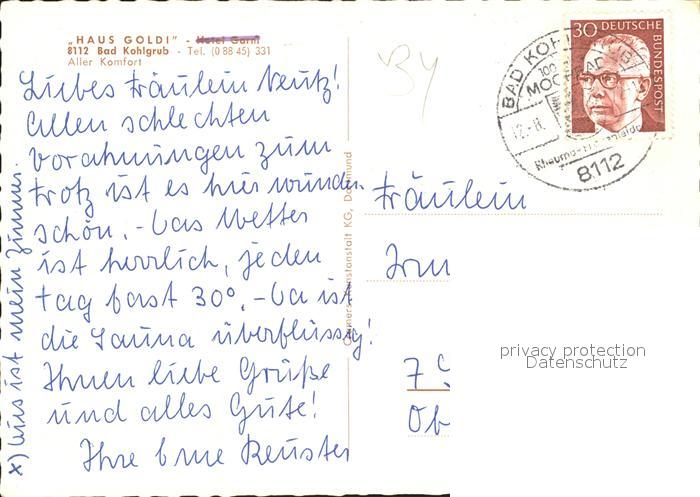 „HAUS GOLDI" - Hotel Garni
8112 Bad Kohlgrub - Tel. (0 88 45) 331
Aller Komfort
Liebes Fräulein Neutz!
Allen schlechten
Vorahnungen zum
trotz ist es hier wunder
schön. - Das Wetter
ist herrlich, jeden
tag fast 30°. - Da ist
die Sauna überflüssig!
Ihnen liebe Grüße
und alles Gute!
Ihre
x) ist mein Zimmer.
KG, Dortmund
BY
30 DEUTSCHE BUNDESPOST
BAD KOHLGRUB
100
MOORBAD
8112
Fräulein
Irm
7
Ob
privacy protection
Datenschutz